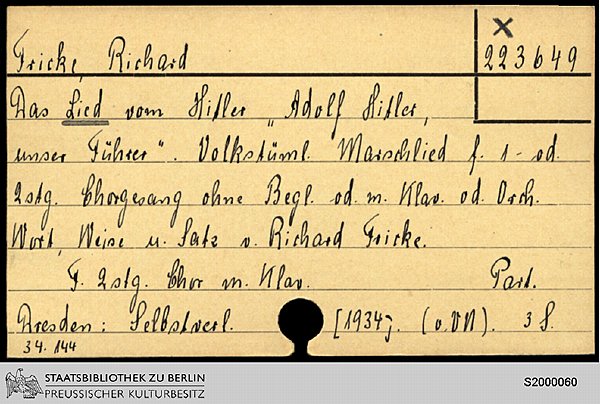 x
Fricke, Richard 223649
Das Lied vom Hitler „Adolf Hitler,
unser Führer". Volkstüml. Marschlied f. 1- od.
2stg. Chorgesang ohne Begl. od. m. Klav. od. Orch.
Wort, Weise u. Satz v. Richard Fricke.
F. 2stg. Chor m. Klav. Part.
Dresden: Selbstverl. [1934]. (o.VN). 3 S.
34. 144
STAATSBIBLIOTHEK ZU BERLIN
PREUSSISCHER KULTURBESITZ
S2000060